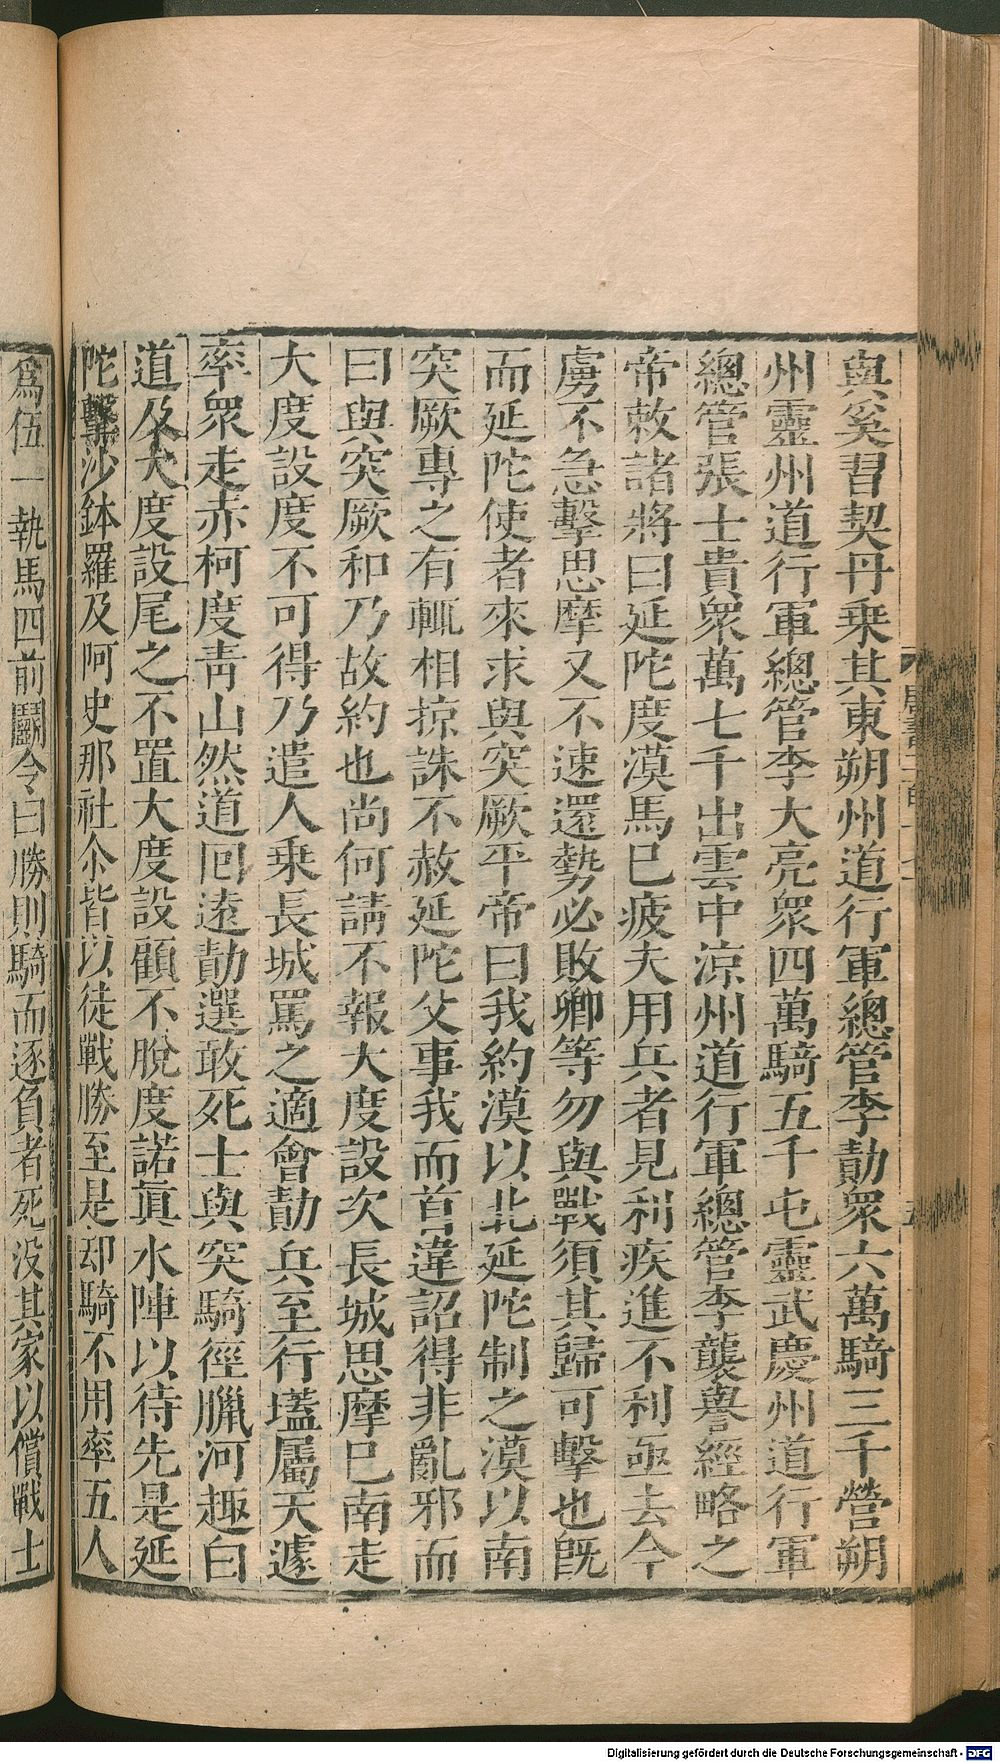 與奚霫契丹乗其東朔州道行軍總管李勣衆六萬騎三千營朔
州靈州道行軍總管李大亮衆四萬騎五千屯靈武慶州道行軍
總管張士貴衆萬七千出雲中涼州道行軍總管李襲譽經略之
帝敕諸將曰延陀度漠馬已疲夫用兵者見利疾進不利亟去今
虜不急擊思摩又不速還勢必敗卿等勿與戰須其歸可擊也旣
而延陀使者來求與突厥平帝曰我約漠以北延陀制之漠以南
突厥專之有輒相掠誅不赦延陀父事我而首違詔得非亂邪而
曰與突厥和乃故約也尚何請不報大度設次長城思摩已南走
大度設度不可得乃遣人乗長城罵之適會勣兵至行壒屬天遽
率衆走赤柯度青山然道回遠勣選敢死士與突騎徑臘河趣白
道及大度設尾之不置大度設顧不脫度諾眞水陣以待先是延
陀擊沙鉢羅及阿史那社尒皆以徒戰勝至是却騎不用率五人
爲伍一執馬四前鬭令曰勝則騎而逐負者死没其家以償戰士
Digitalisierung gefördert durch die Deutsche Forschungsgemeinschaft - DFG